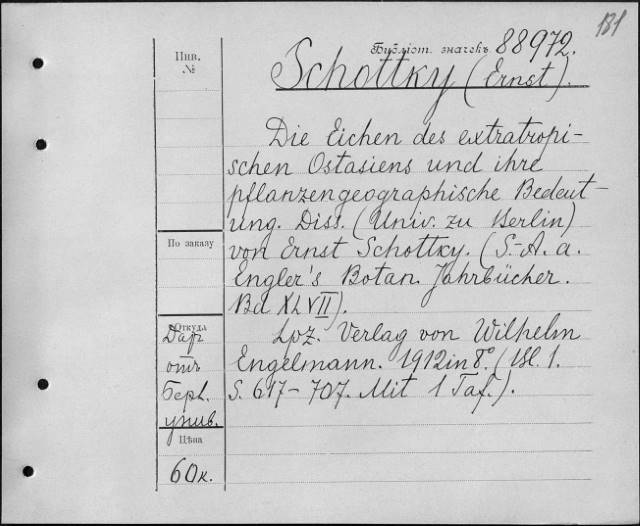 131
Библіот. значекъ 88972.
Инв.
№
Schottky (Ernst).
Die Eichen des extratropi-
schen Ostasiens und ihre
pflanzengeographische Bedeut-
ung. Diss. (Univ. zu Berlin)
По заказу
von Ernst Schottky. (S.-A. a.
Engler's Botan. Jahrbücher.
Bd XLVII).
Откуда
Дар
отъ
Берл.
унив.
Lpz. Verlag von Wilhelm
Engelmann. 1912 in 8°. (Bl. 1.
S. 617-707. Mit 1 Taf.).
Цѣна
60 к.